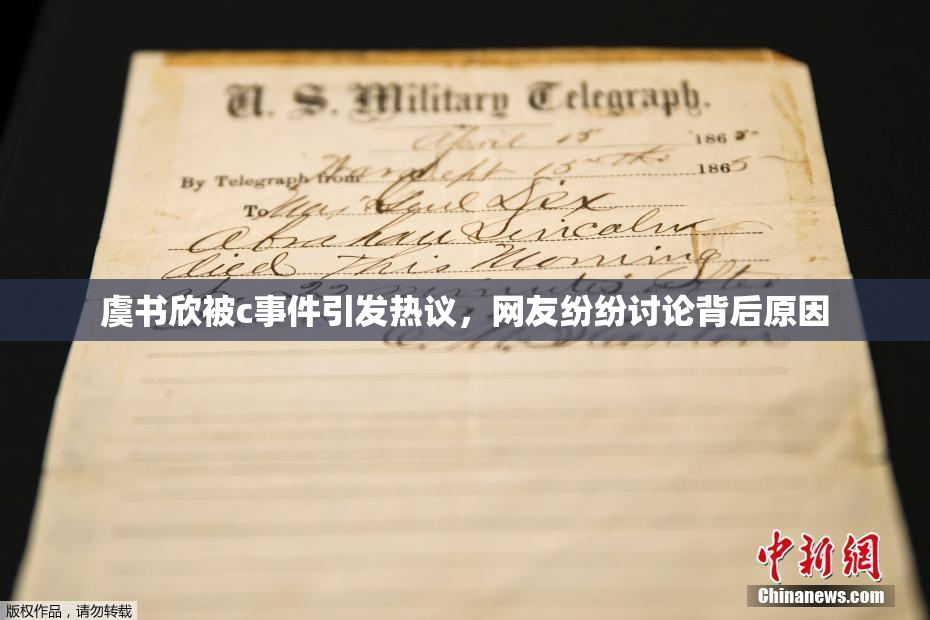 U. S. Military Telegraph.
April 15 1865
By Telegraph from War Dept 15th 1865
To Maj Genl Dix
Abraham Lincoln
died This Morning
22 minutes after
虞书欣被c事件引发热议，网友纷纷讨论背后原因
E. M. Stanton
中新網
Chinanews.com
版权作品，请勿转载